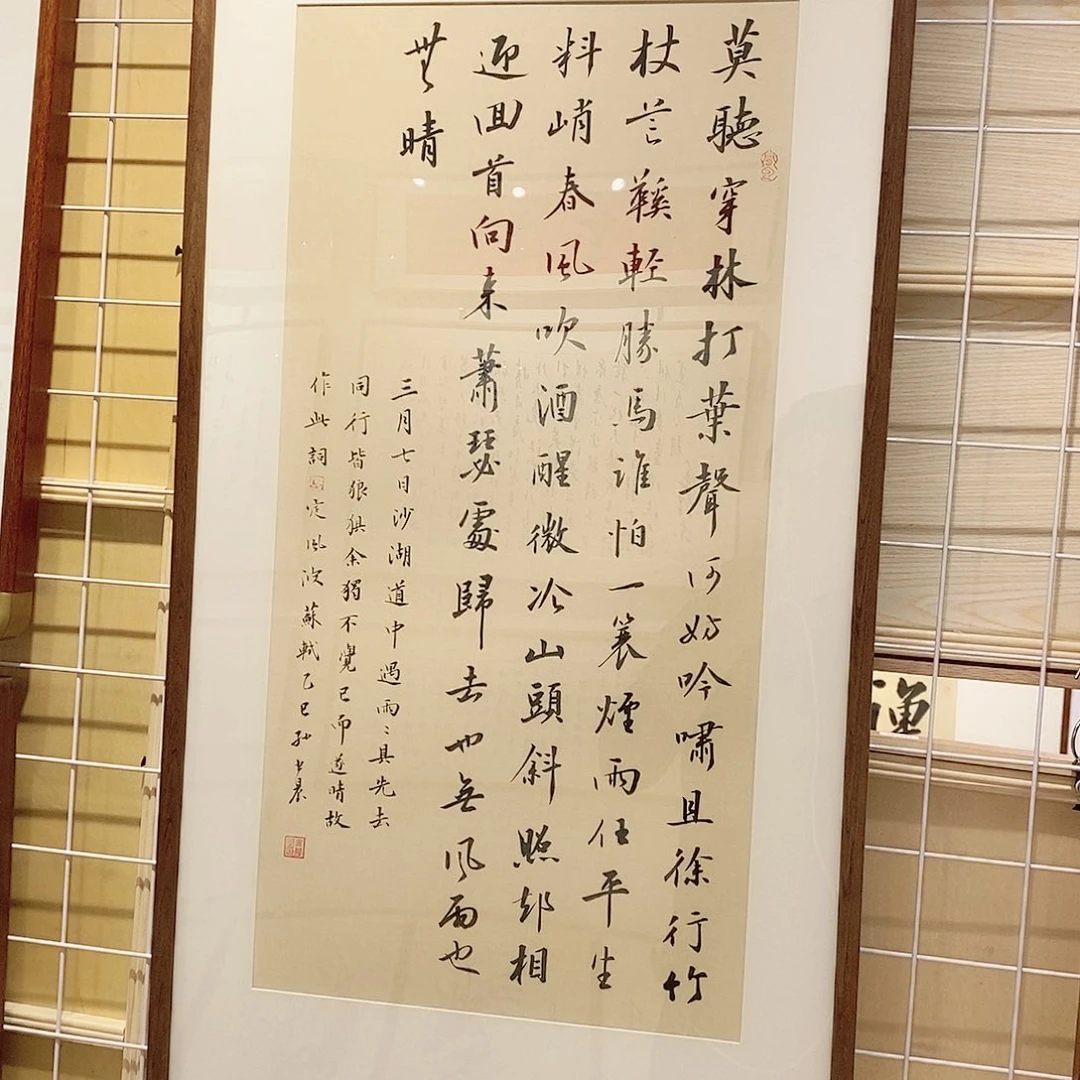 莫聽穿林打葉聲何妨吟嘯且徐行竹
杖芒鞵輕勝馬誰怕一蓑煙雨任平生
料峭春風吹酒醒微冷山頭斜照却相
迎回首向来蕭瑟處歸去也無風雨也
無晴
三月七日沙湖道中遇雨〻具先去
同行皆狼狽余獨不覺已而遂晴故
作此詞 定風波蘇軾乙巳孙